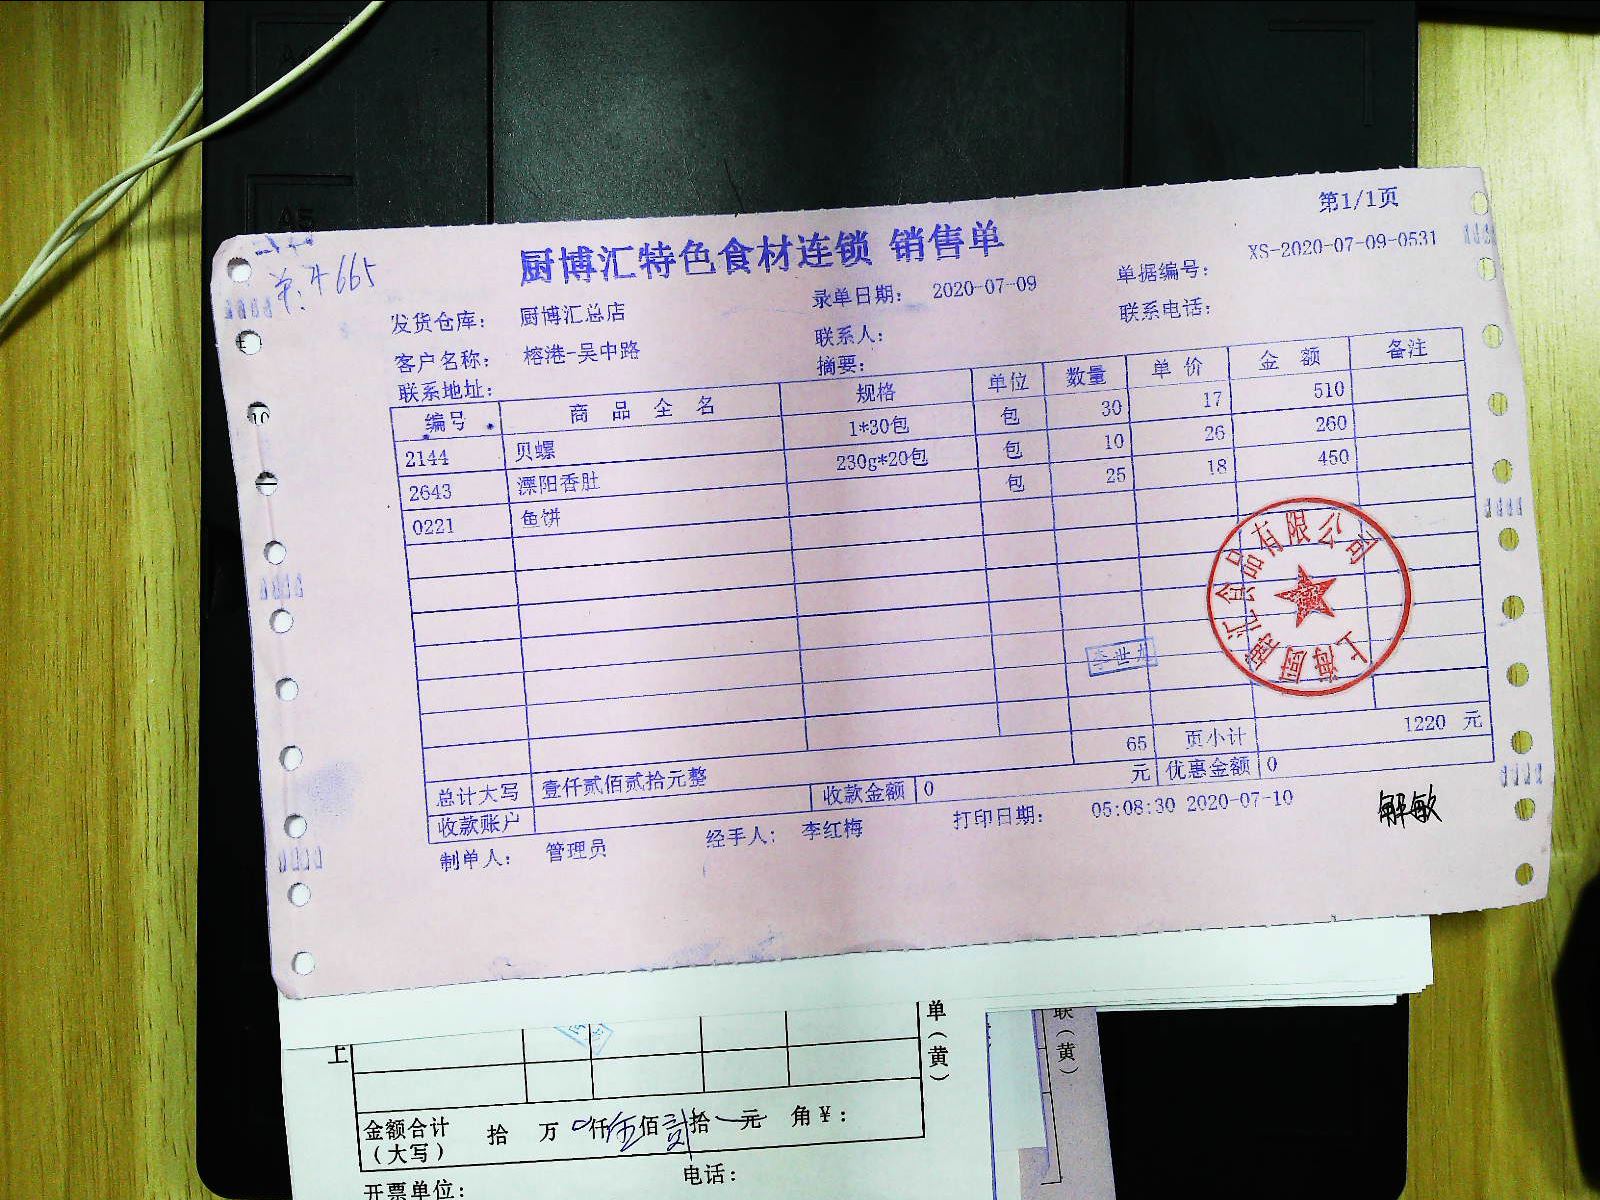 第1/1页
厨博汇特色食材连锁 销售单
665
发货仓库： 厨博汇总店 录单日期： 2020-07-09 单据编号： XS-2020-07-09-0531
客户名称： 榕港-吴中路 联系人： 联系电话：
联系地址： 摘要：
编号 商品全名 规格 单位 数量 单价 金额 备注
2144 贝螺 1*30包 包 30 17 510
2643 溧阳香肚 230g*20包 包 10 26 260
0221 鱼饼 包 25 18 450
上海厨博汇食品有限公司
65 页小计 1220 元
总计大写 壹仟贰佰贰拾元整 收款金额 0 元 优惠金额 0
收款账户
制单人： 管理员 经手人： 李红梅 打印日期： 05:08:30 2020-07-10
解敏
A5
上
单（黄）
联（黄）
金额合计（大写） 拾 万 仟 佰 拾 元 角 ¥：
开票单位： 电话：